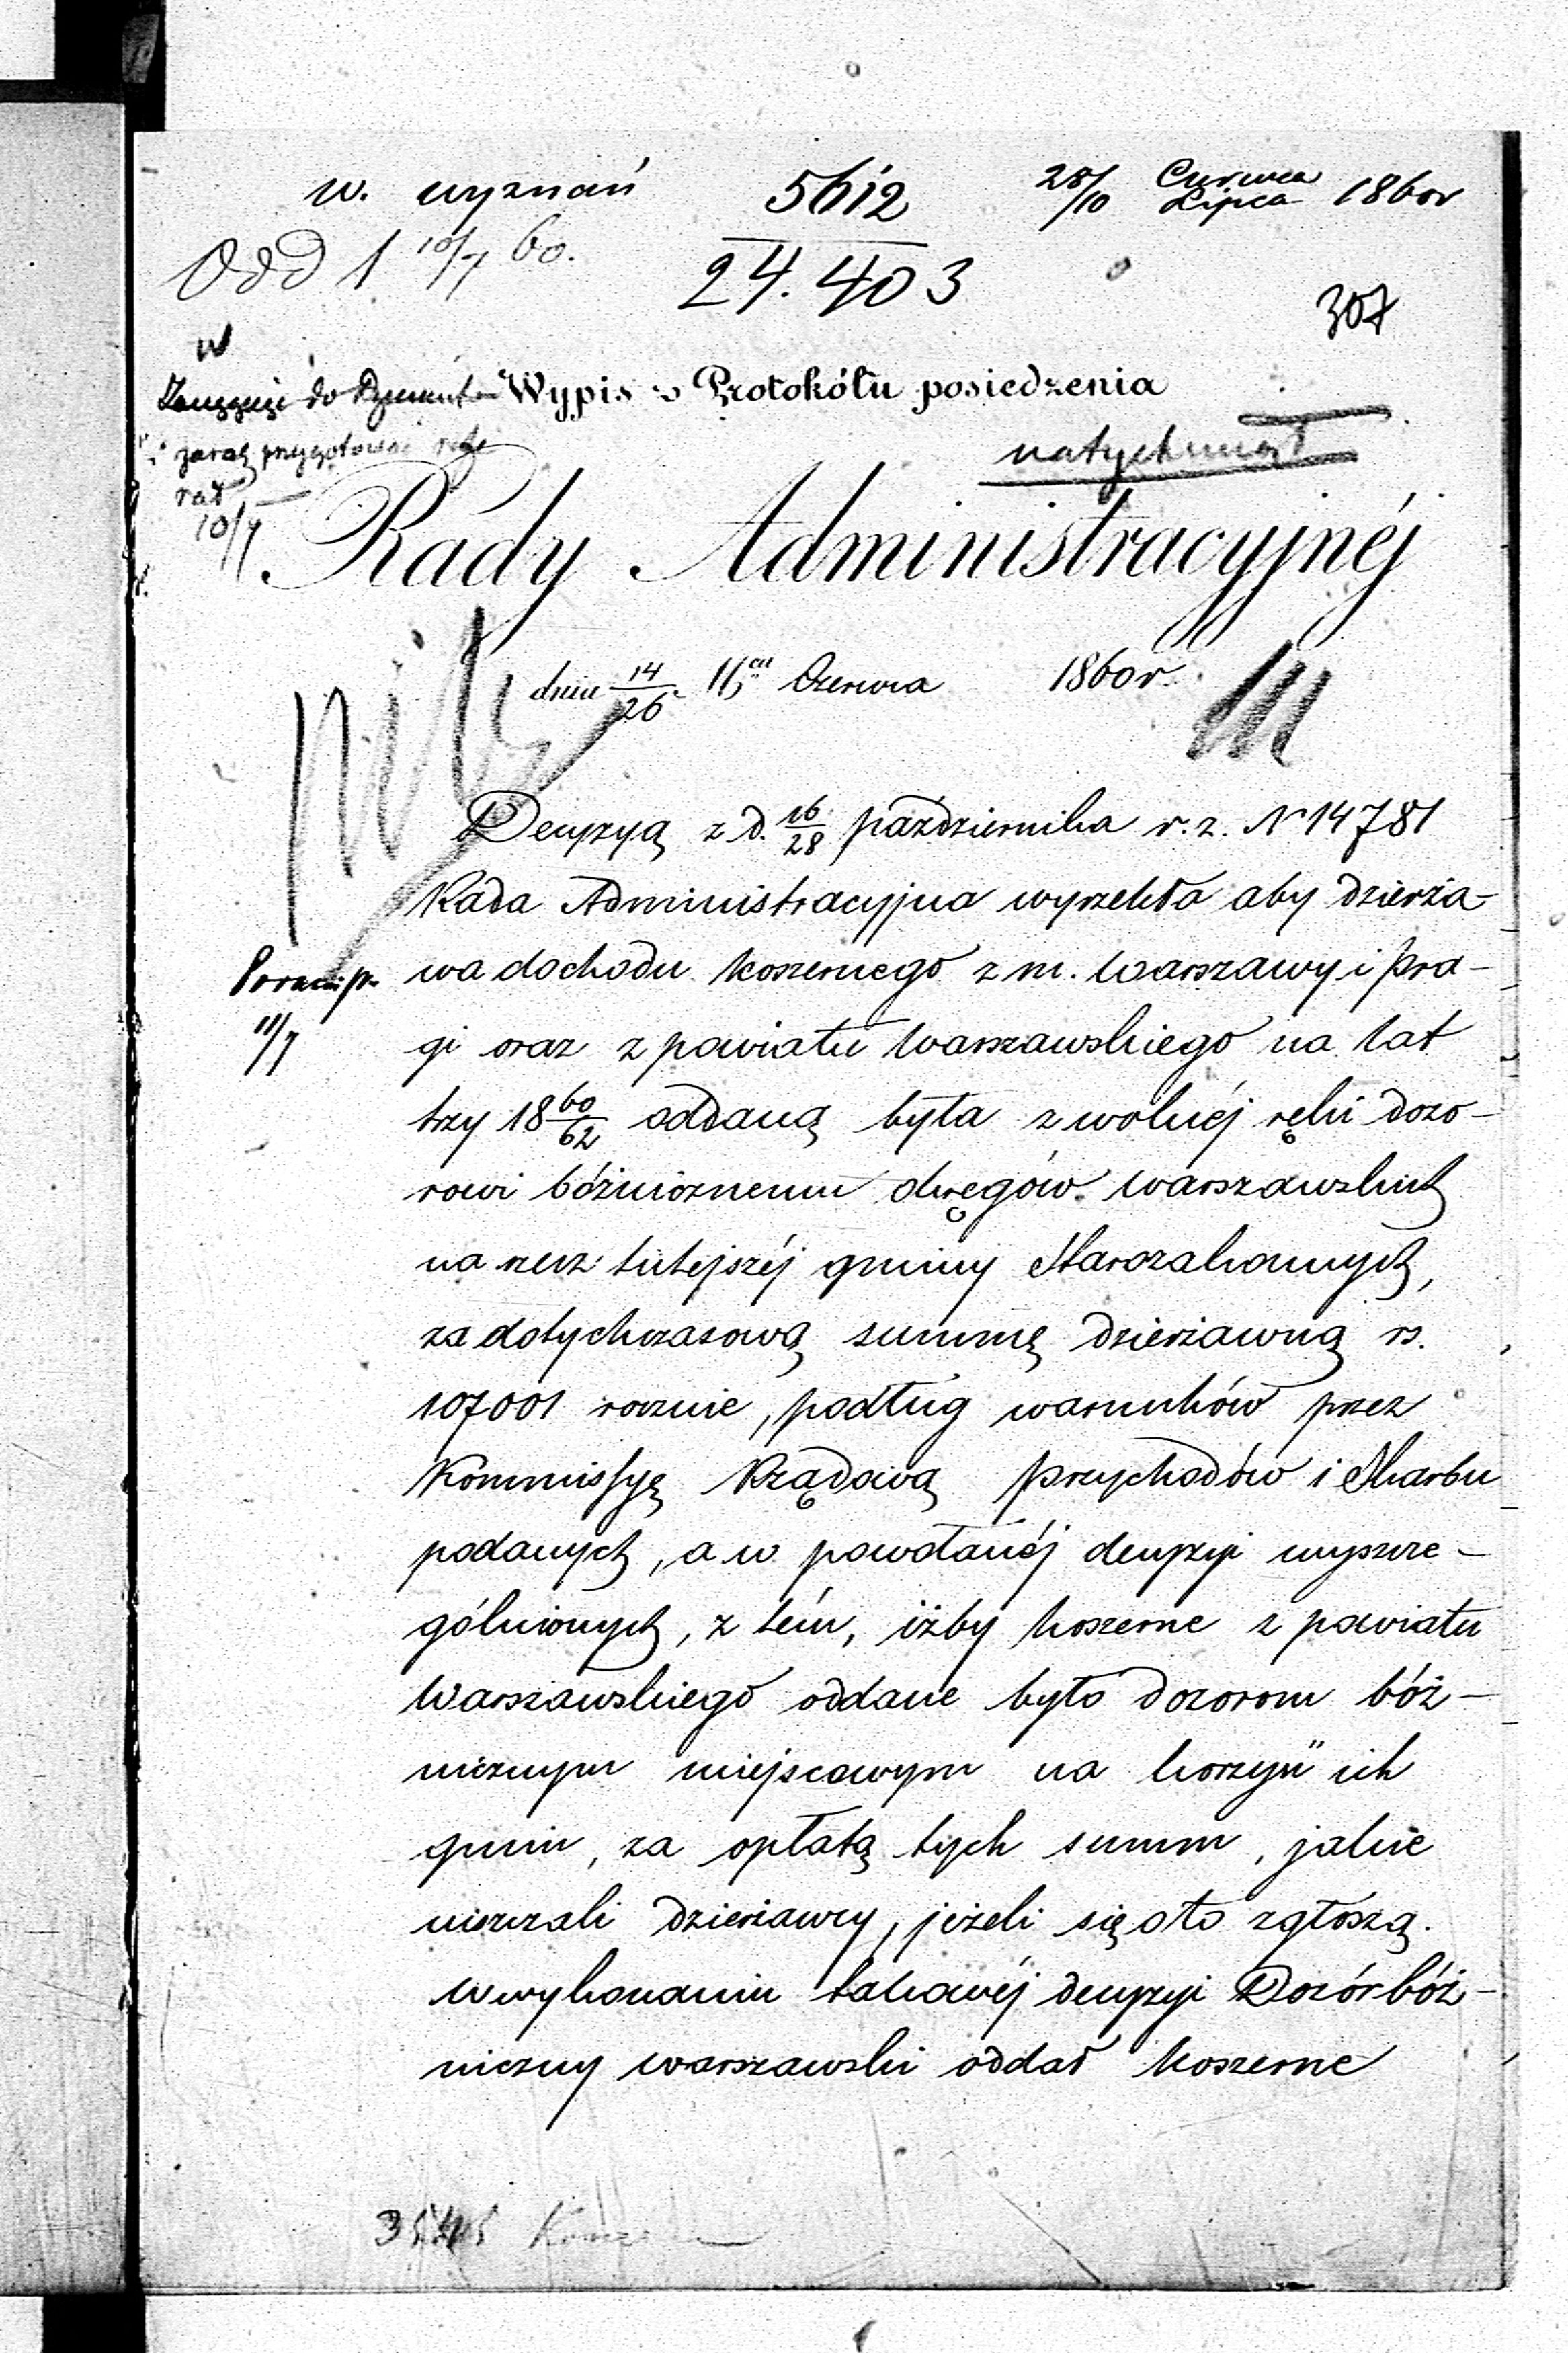 w. wyznań 5612 28/10 Czerwca Lipca 1860r
Odd 1 10/7 60. 24.403
307
w
do Wypis z Protokółu posiedzenia
i zaraz przygotować refe
rat natychmiast
10/7
Rady Administracyjnéj
dnia 14/26 Czerwca 1860r.
Decyzyą z d. 16/28 października r. z. N 14781
Rada Administracyjna wyrzekła aby dzierża-
wa dochodu koszernego z m. Warszawy i Pra-
11/7
gi oraz z powiatu Warszawskiego na lat
trzy 18 60/62 oddaną była z wolnéj ręki dozo-
rowi bóżnicznemu okręgów warszawskich
na rzecz tutejszéj gminy Starozakonnych,
za dotychczasową summę dzierżawną rs.
107001 rocznie, podług warunków przez
Kommissyę Rządową Przychodów i Skarbu
podanych, a w powołanéj decyzyi wyszcze-
gólnionych, z tém, iżby koszerne z powiatu
Warszawskiego oddane było dozorom bóż-
nicznym miejscowym na korzyść ich
gmin, za opłatą tych summ, jakie
uiszczali dzierżawcy, jeżeli się o to zgłoszą.
W wykonaniu takowéj decyzyi Dozór bóż-
niczny warszawski oddał koszerne